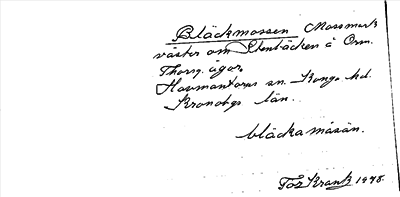 Bläckmossen Mossmark
väster om Stenbäcken å Orm.
Thorng. ägor.
Hovmantorps sn. Konga hd.
Kronobgs län.
bläckamåsàn.
1978.